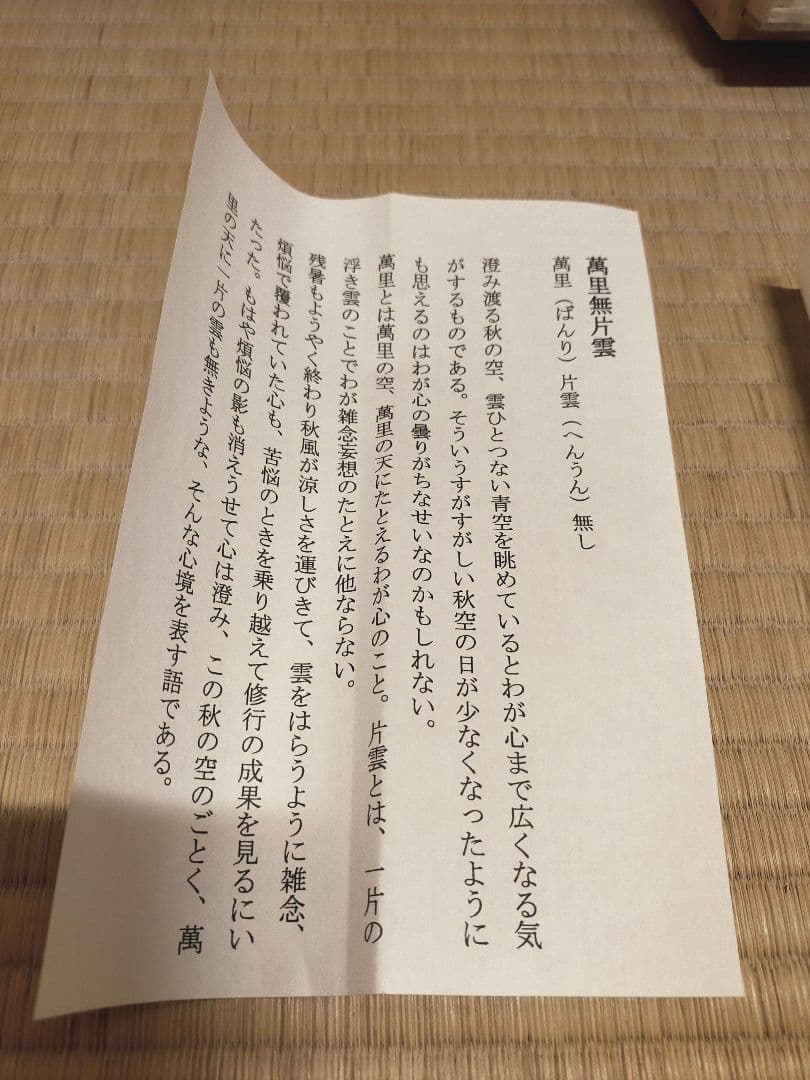 萬里無片雲
萬里（ばんり）片雲（へんうん）無し
澄み渡る秋の空、雲ひとつない青空を眺めているとわが心まで広くなる気
がするものである。そういうすがすがしい秋空の日が少なくなったように
も思えるのはわが心の曇りがちなせいなのかもしれない。
萬里とは萬里の空、萬里の天にたとえるわが心のこと。片雲とは、一片の
浮き雲のことでわが雑念妄想のたとえに他ならない。
残暑もようやく終わり秋風が涼しさを運びきて、雲をはらうように雑念、
煩悩で覆われていた心も、苦悩のときを乗り越えて修行の成果を見るにい
たった。もはや煩悩の影も消えうせて心は澄み、この秋の空のごとく、萬
里の天に一片の雲も無きような、そんな心境を表す語である。